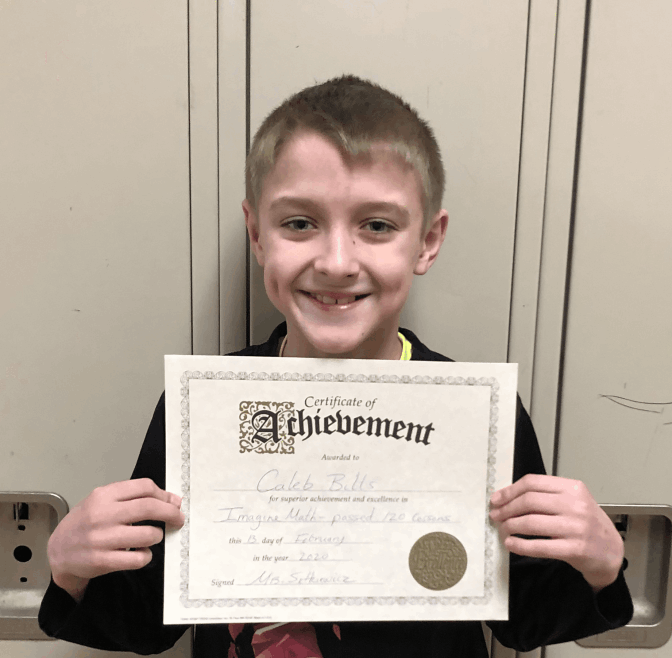 Certificate of
Achievement
Awarded to
Caleb Bitts
for superior achievement and excellence in
Imagine Math - passed 120 Lessons
this 13 day of February
in the year 2020
Signed Mrs.